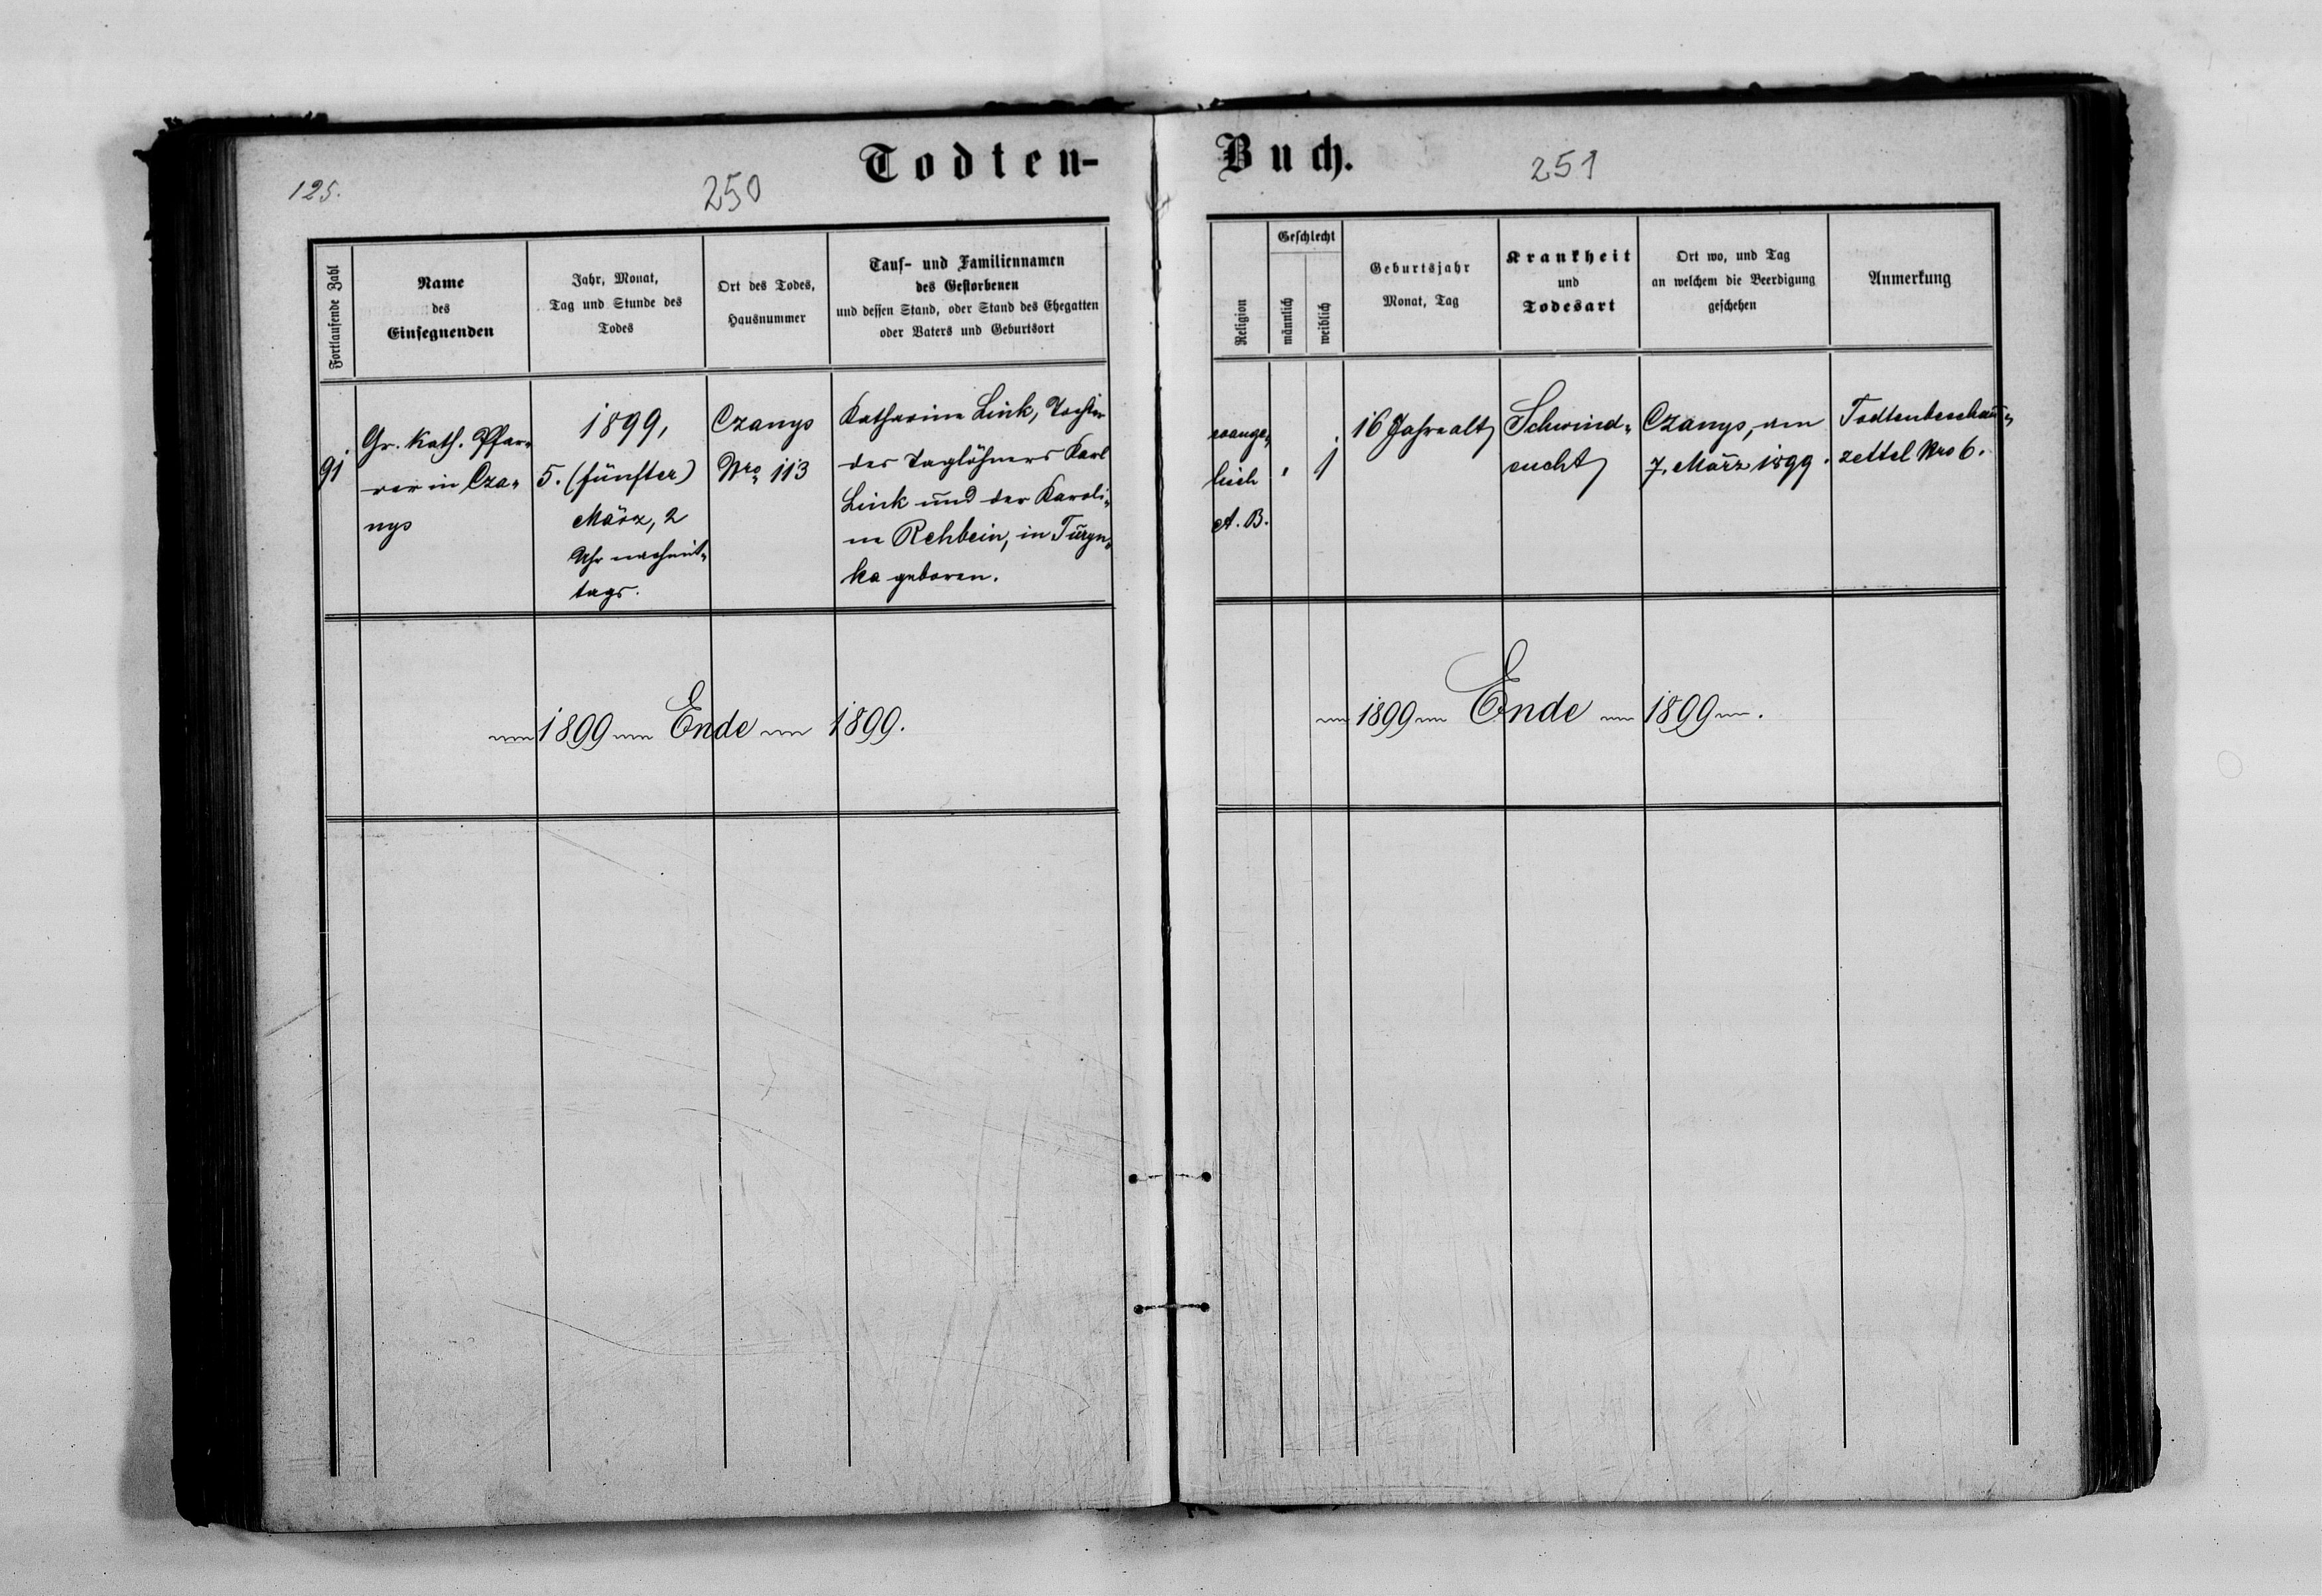 Todten-
125.
250
Fortlaufende Zahl
Name
des
Einsegnenden
Jahr, Monat,
Tag und Stunde des
Todes
Ort des Todes,
Hausnummer
Tauf- und Familiennamen
des Gestorbenen
und dessen Stand, oder Stand des Ehegatten
oder Vaters und Geburtsort
91
Gr. Kath. Pfar-
rer in Cza-
nys
1899,
5. (fünfter)
März, 2
Uhr nachmit-
tags.
Czanys
Nro 113
Katharina Link, Tochter
des Taglöhners Karl
Link und der Karoli-
ne Rehbein, in Turyn-
ka geboren.
1899 Ende 1899.
Buch.
251
Religion
Geschlecht
männlich
weiblich
Geburtsjahr
Monat, Tag
Krankheit
und
Todesart
Ort wo, und Tag
an welchem die Beerdigung
geschehen
Anmerkung
evange-
lisch
A. B.
1
16 Jahre alt
Schwind-
sucht
Czanys, am
7. März 1899.
Todtenbeschau-
zettel Nro 6.
1899 Ende 1899.